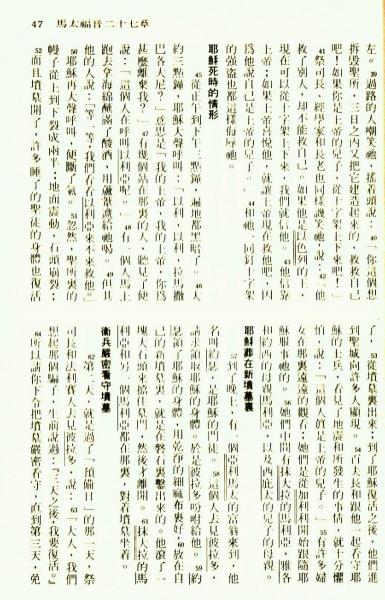 47　馬太福音二十七章
左。39過路的人嘲笑祂，搖着頭說：40「你這個想
拆毀聖所，三日之內又把它建造起來的，救救自己
吧！如果你是上帝的兒子，從十字架上下來吧！」
41祭司長、經學家和長老也同樣譏笑祂，說：42「他
救了別人，却不能救自己。如果他是以色列的王，
現在可以從十字架上下來，我們就信他。43他信靠
上帝；如果上帝喜悅他，就讓上帝現在救他吧，因
爲他說自己是上帝的兒子。」44和祂一同釘十字架
的強盜也都這樣侮辱祂。
耶穌死時的情形
45從正午到下午三點鐘，遍地都黑暗了。46大
約三點鐘，耶穌大聲呼叫：「以利，以利，拉馬撒
巴各大尼？」意思是「我的上帝，我的上帝，你爲
甚麼離棄我？」47有幾個站在那裏的人，聽見了便
說：「這個人在呼叫以利亞呢。」48有一個人馬上
跑去拿海綿蘸滿了酸酒，用蘆葦遞給祂喝。49但其
他的人說：「等一等，我們看看以利亞來不來救他。」
50耶穌再大聲呼叫，便斷了氣。51忽然，聖所裏的
幔子從上到下裂成兩半；地面震動，石頭崩裂；
52而且墳墓開了，許多睡了的聖徒的身體也復活
了，53從墳墓裏出來；到了耶穌復活之後，他們進
到聖城向許多人顯現。54百夫長和跟他一起看守耶
穌的士兵，看見了地震和所發生的事情，就十分懼
怕，說：「這個人眞是上帝的兒子。」55有許多婦
女在那裏遠遠的觀看；她們是從加利利開始跟隨耶
穌服事祂的。56她們中間有抹大拉的馬利亞，雅各
和約西的母親馬利亞，以及西庇太的兒子的母親。
耶穌葬在新墳墓裏
57到了晚上，有一個亞利馬太的富翁來到，他
名叫約瑟，是耶穌的門徒。58這個人去見彼拉多，
請求領取耶穌的身體，於是彼拉多吩咐給他。59約
瑟領了耶穌的身體，用乾净的細麻布裹好，60放在自
己的新墳墓裏，就是在磐石裏鑿出來的。他滾了一
塊大石頭來擋住墓門，然後才離開。61抹大拉的馬
利亞和另一個馬利亞都在那裏，對着墳墓坐着。
衛兵嚴密看守墳墓
62第二天，就是過了「預備日」的那一天，祭
司長和法利賽人去見彼拉多，說：63「大人，我們
想起那個騙子，生前說過：『三天之後，我要復活。』
64所以請你下令把墳墓嚴密看守，直到第三天，免